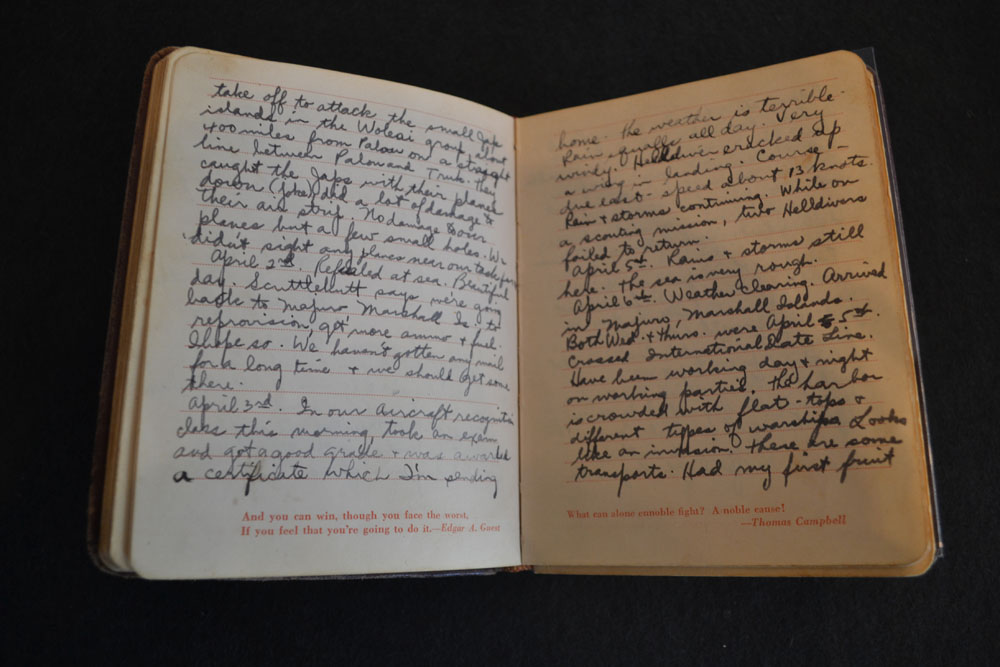 take off to attack the small Jap
islands in the Woleai group about
400 miles from Palau on a straight
line between Palau and Truk. They
caught the Japs with their planes
down (joke) did a lot of damage to
their air strip. No damage to our
planes but a few small holes. We
didn't sight any planes near our task force
April 2nd. Refueled at sea. Beautiful
day. Scuttlebutt says we're going
back to Majuro, Marshall Is. to
reprovision, get more ammo + fuel.
I hope so. We haven't gotten any mail
for a long time + we should get some
there.
April 3rd. In our Aircraft recognition
class this morning, took an exam
and got a good grade + was awarded
a certificate which I'm sending
And you can win, though you face the worst,
If you feel that you're going to do it.—Edgar A. Guest
home. The weather is terrible.
Rain squalls all day. Very
windy. Helldiver cracked up
a wing in landing. Course –
due east - speed about 13 knots.
Rain + storms continuing. While on
a scouting mission, two Helldivers
failed to return.
April 5th. Rains + storms still
here. The sea is very rough.
April 6th. Weather clearing. Arrived
in Majuro, Marshall Islands.
Both Wed. + thurs. were April 5th.
Crossed International Date Line.
Have been working day + night
on working parties. The harbor
is crowded with flat-tops +
different types of warships. Looks
like an invasion? There are some
transports. Had my first fruit
What can alone ennoble fight? A noble cause!
—Thomas Campbell